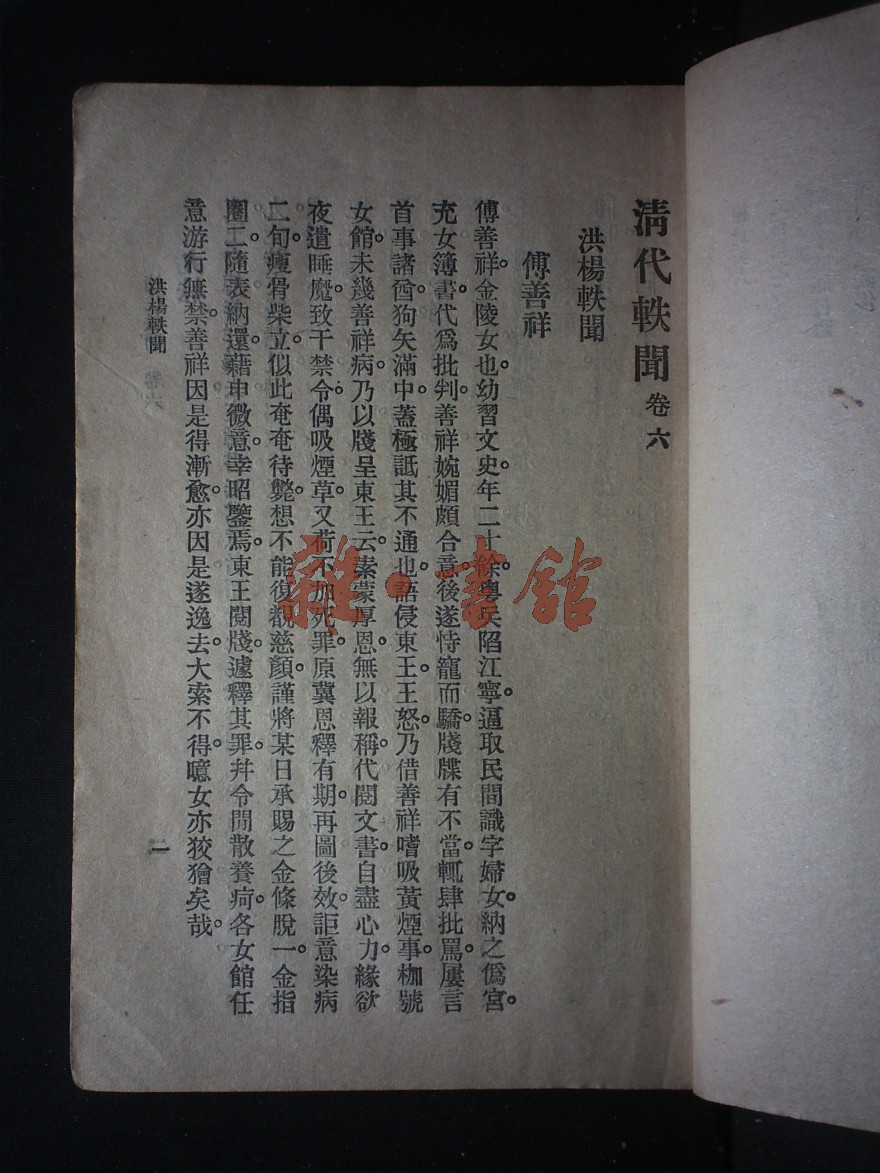 清代軼聞 卷六
洪楊軼聞
傅善祥
傅善祥。金陵女也。幼習文史。年二十餘。粵兵陷江寧。逼取民間識字婦女。納之僞宮。
充女簿書。代爲批判。善祥婉媚頗合意。後遂恃寵而驕。牋牒有不當。輒肆批罵。屢言
首事諸酋狗矢滿中。蓋極詆其不通也。語侵東王。王怒。乃借善祥嗜吸黃煙事。枷號
女館。未幾善祥病。乃以牋呈東王云。素蒙厚恩。無以報稱。代閱文書。自盡心力。緣欲
夜遣睡魔。致干禁令。偶吸煙草。又荷不加死罪。原冀恩釋有期。再圖後效。詎意染病
二旬。瘦骨柴立。似此奄奄待斃。想不能復覩慈顏。謹將某日承賜之金條脫一。金指
圈二。隨表納還。藉申微意。幸昭鑒焉。東王閱牋。遽釋其罪。幷令閒散養疴。各女館任
意游行無禁。善祥因是得漸愈。亦因是遂逸去。大索不得。噫。女亦狡獪矣哉。
洪楊軼聞 卷六
一
雜·書館